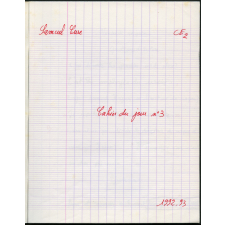 Samuel Case CE2
Cahier du jour n°3
1992.93